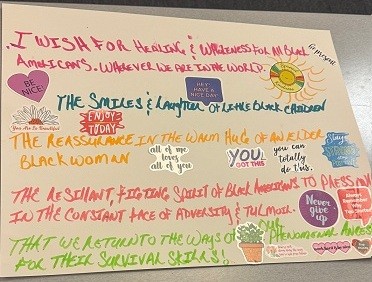 I WISH FOR HEALING & WHOLENESS FOR All Black
AMERICANS. WHEREVER WE ARE IN THE WORLD.
BE NICE
HEY HAVE A NICE DAY
THE SMILES & LAUGHTER OF LITTLE BLACK CHILDREN
You Are So Beautiful
ENJOY TODAY
THE REASSURANCE IN THE WARM HUG OF AN ELDER
BLACK WOMAN
all of me loves all of you
YOU GOT THIS
you can totally do this.
THE RESILIANT, FIGTING SPIRIT OF BLACK AMERICANS TO PRESS ON
IN THE CONSTANT FACE OF ADVERSITY & TULMOIL.
Never give up
THAT WE RETURN TO THE WAYS OF OUR PHENOMENAL
FOR THEIR SURVIVAL SKILLS!